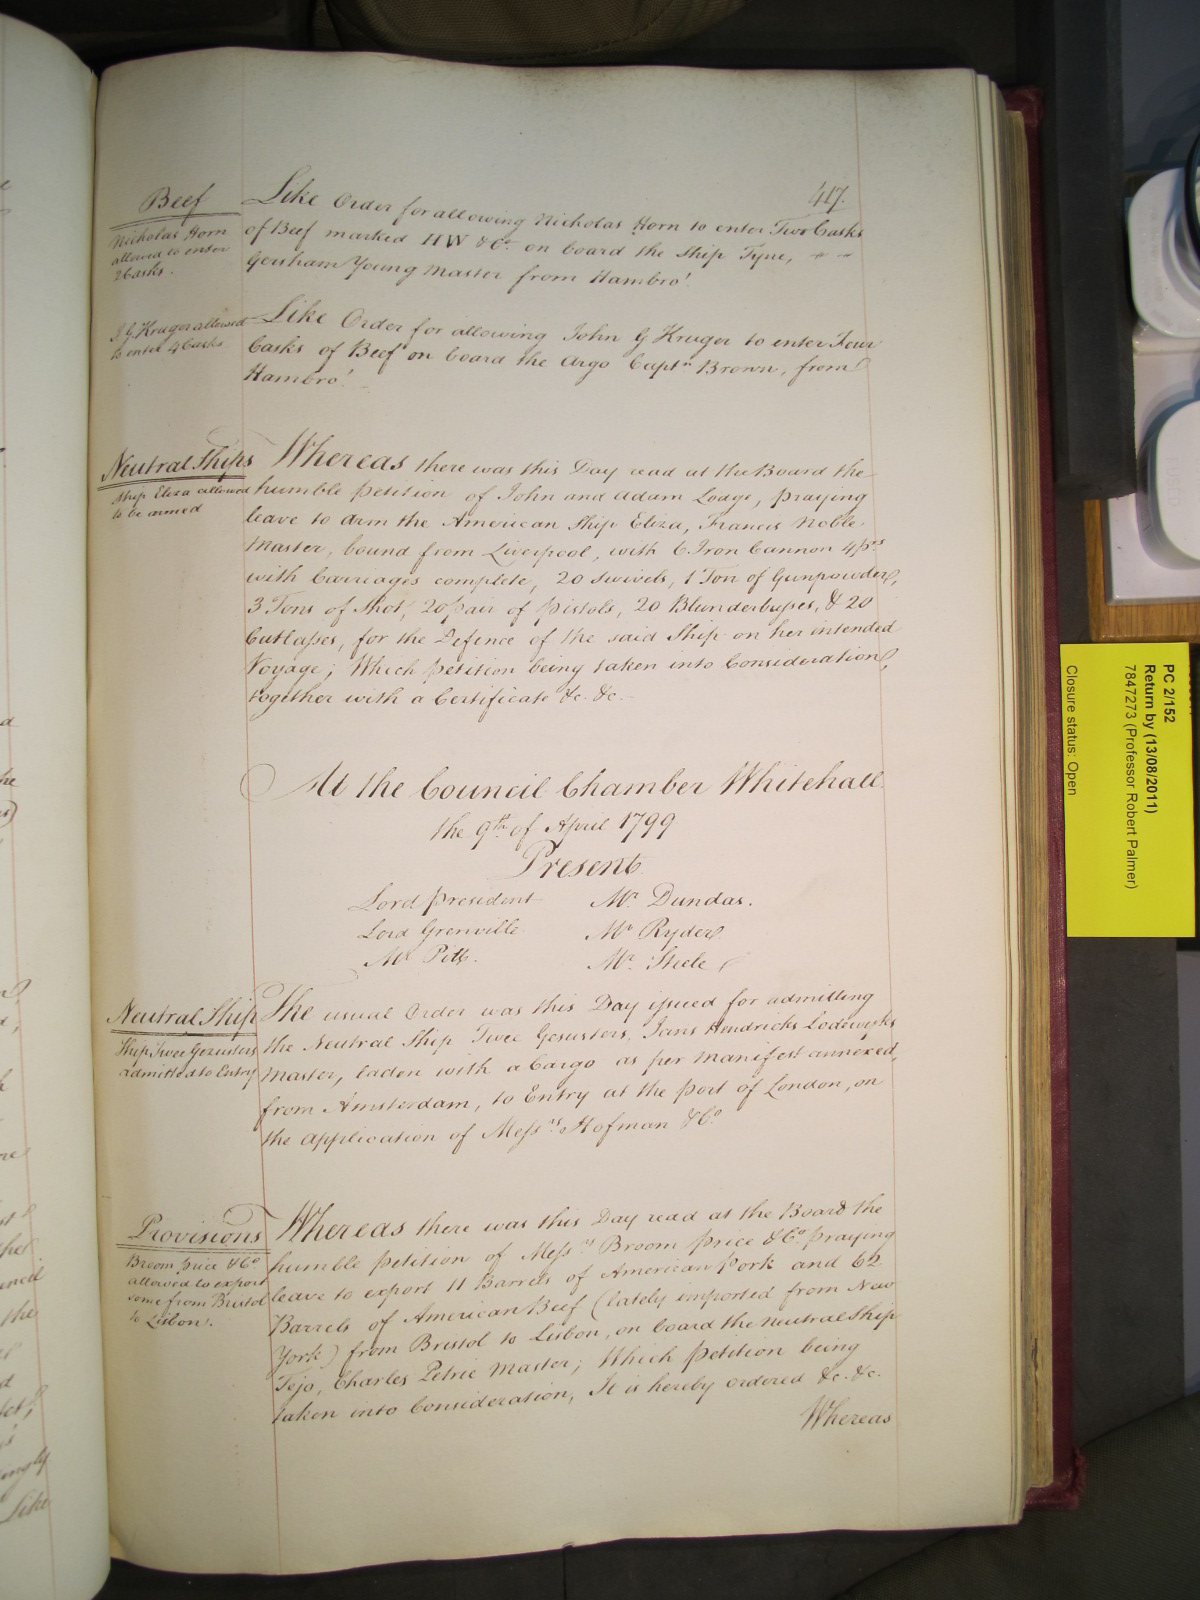 417.
Beef
Nicholas Horn
allowed to enter
2 Casks.
Like Order for allowing Nicholas Horn to enter Two Casks
of Beef marked HW & Co. on board the Ship Tyne,
Gersham Young Master from Hambro'.
J G Kruger allowed
to enter 4 Casks
Like Order for allowing John G Kruger to enter Four
Casks of Beef on board the Argo Captn Brown, from
Hambro'.
Neutral Ships
Ship Eliza allowed
to be armed
Whereas there was this Day read at the Board the
humble Petition of John and Adam Lodge, praying
leave to Arm the American Ship Eliza, Francis Noble
Master, bound from Liverpool, with 6 Iron Cannon 4 prs
with Carriages complete, 20 Swivels, 1 Ton of Gunpowder,
3 Tons of Shot, 20 pair of Pistols, 20 Blunderbusses, & 20
Cutlasses, for the Defence of the said Ship on her intended
Voyage; Which Petition being taken into Consideration,
together with a Certificate &c. &c.
At the Council Chamber Whitehall
the 9th of April 1799
Present
Lord President Mr. Dundas.
Lord Grenville Mr. Ryder
Mr. Pitt. Mr. Steele
Neutral Ship
Ship Twee Gezusters
admitted to Entry
The usual Order was this Day issued for admitting
the Neutral Ship Twee Gesusters, Jans Hendricks Lodewyks
Master, laden with a Cargo as per Manifest annexed,
from Amsterdam, to Entry at the Port of London, on
the Application of Messrs. Hofman & Co.
Provisions
Broom Price & Co
allowed to export
some from Bristol
to Lisbon.
Whereas there was this Day read at the Board the
humble Petition of Messrs Broom Price & Co. praying
leave to export 11 Barrels of American Pork and 62
Barrels of American Beef (lately imported from New
York) from Bristol to Lisbon, on board the Neutral Ship
Tejo, Charles Petrie Master; Which Petition being
taken into Consideration, It is hereby ordered &c. &c.
Whereas
PC 2/152
Return by (13/08/2011)
7847273 (Professor Robert Palmer)
Closure status: Open